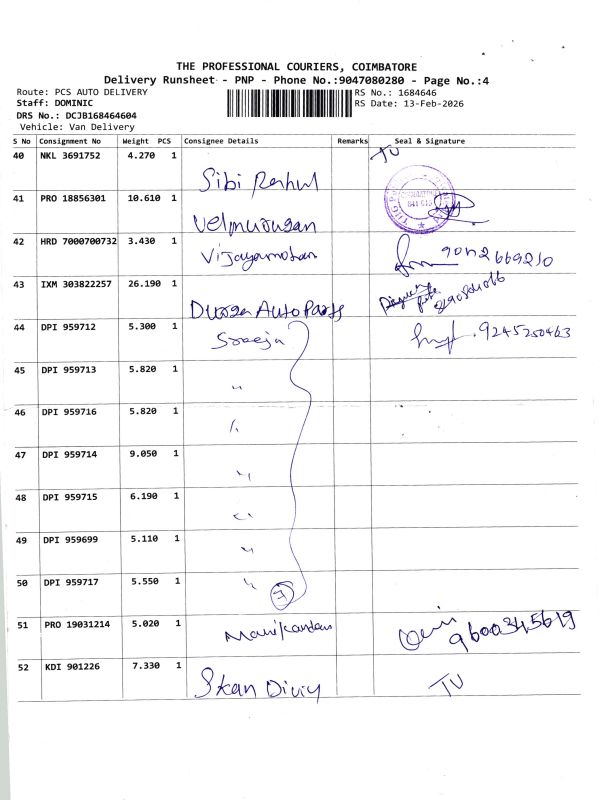 THE PROFESSIONAL COURIERS, COIMBATORE
Delivery Runsheet - PNP - Phone No.:9047080280 - Page No.:4
Route: PCS AUTO DELIVERY RS No.: 1684646
Staff: DOMINIC RS Date: 13-Feb-2026
DRS No.: DCJB168464604
Vehicle: Van Delivery
S No Consignment No Weight PCS Consignee Details Remarks Seal & Signature
40 NKL 3691752 4.270 1 Sibi Rahul TU
41 PRO 18856301 10.610 1 Velmurugan
42 HRD 7000700732 3.430 1 Vijayamohan
43 IXM 303822257 26.190 1 Durga Auto Parts
44 DPI 959712 5.300 1 Sreeja 9245250463
45 DPI 959713 5.820 1 "
46 DPI 959716 5.820 1 "
47 DPI 959714 9.050 1 "
48 DPI 959715 6.190 1 "
49 DPI 959699 5.110 1 "
50 DPI 959717 5.550 1 " 7
51 PRO 19031214 5.020 1 Manikandan 9600345619
52 KDI 901226 7.330 1 Skan Divy TU